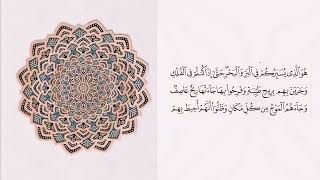 هُوَ الَّذِي يُسَيِّرُكُمْ فِي الْبَرِّ وَالْبَحْرِ حَتَّىٰ إِذَا كُنْتُمْ فِي الْفُلْكِ
وَجَرَيْنَ بِهِم بِرِيحٍ طَيِّبَةٍ وَفَرِحُوا بِهَا جَاءَتْهَا رِيحٌ عَاصِفٌ
وَجَاءَهُمُ الْمَوْجُ مِن كُلِّ مَكَانٍ وَظَنُّوا أَنَّهُمْ أُحِيطَ بِهِمْ